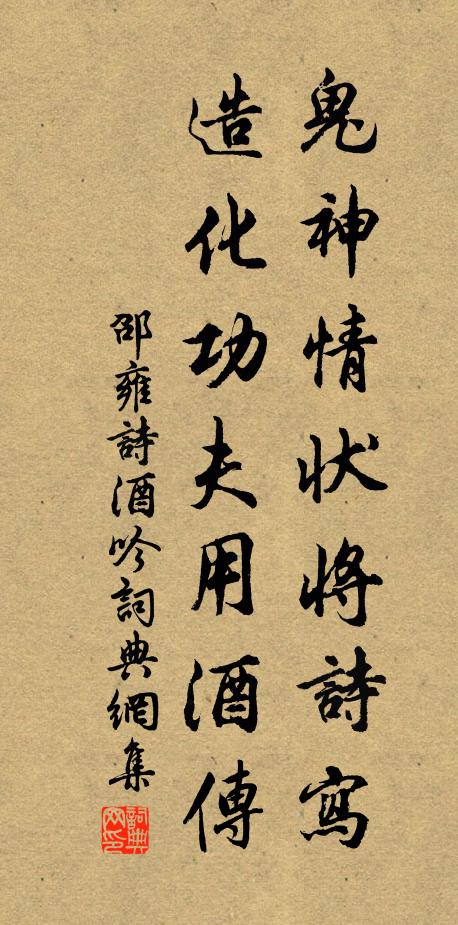 鬼神情狀將詩寫
造化功夫用酒傳
邵雍詩酒吟詞典網集
詞典网印